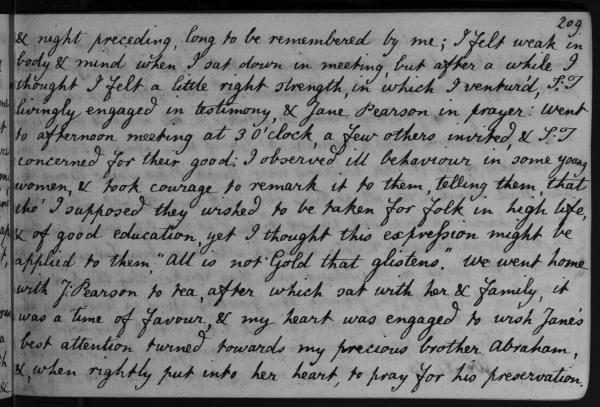 209
& night preceding, long to be remembered by me; I felt weak in
body & mind when I sat down in meeting, but after a while I
thought I felt a little right strength, in which I ventur'd, S:T
livingly engaged in testimony, & Jane Pearson in prayer: went
to afternoon meeting at 3 O'clock, a few others invited, & S:T
concerned for their good: I observed ill behaviour in some young
women, & took courage to remark it to them, telling them, that
tho' I supposed they wished to be taken for folk in high life,
& of good education, yet I thought this expression might be
applied to them, "All is not Gold that glistens." We went home
with J:Pearson to tea, after which sat with her & family, it
was a time of favour, & my heart was engaged to wish Jane's
best attention turned towards my precious brother Abraham,
&, when rightly put into her heart, to pray for his preservation.